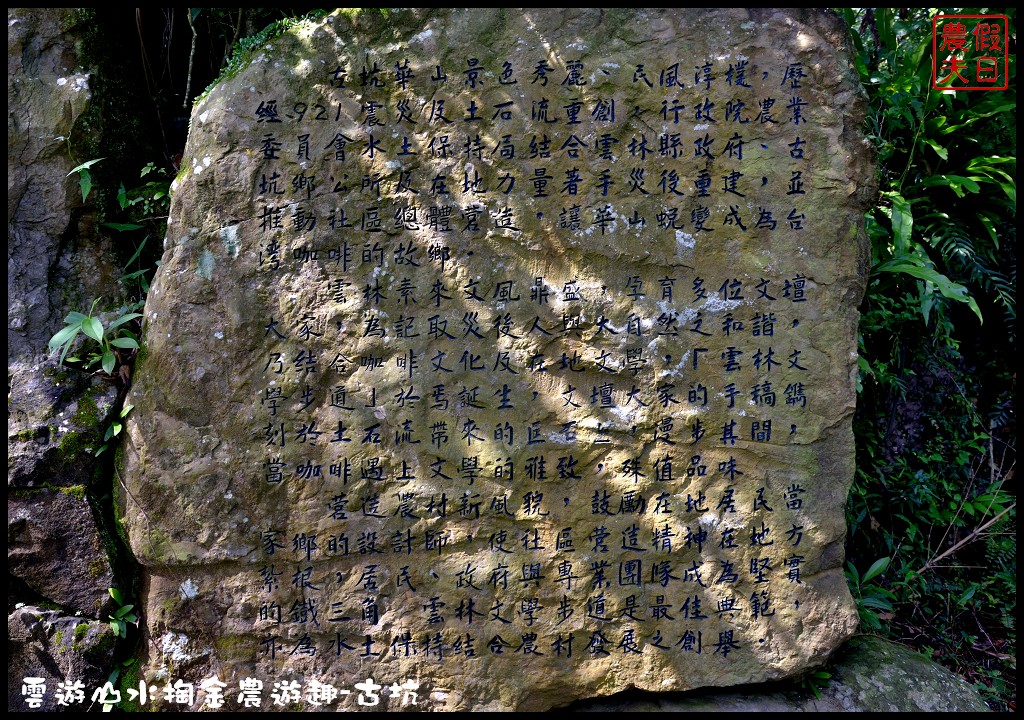 古坑華山景色秀麗、民風淳樸，歷
經921震災及土石流重創、行政院農業
委員會水土保持局結合雲林縣政府、古
坑鄉公所及在地力量著手災後重建，並
推動社區總體營造，讓華山蛻變成為台
灣咖啡的故鄉。
雲林素來文風鼎盛，孕育多位文壇
大家，為記取災後人與大自然之和諧，
乃結合咖啡文化及在地文學，「雲林文
學步道」於焉誕生，文壇大家的手稿鐫
刻於土石流帶來的巨石上，漫步其間，
當咖啡遇上文學的雅致，殊值品味。
營造農村新風貌，鼓勵在地居民當
家鄉的設計師，使社區營造精神在地方
紮根，居民、政府與專業團隊成為堅實
的鐵三角，雲林文學步道是最佳典範，
示為水土保持結合農村發展之創舉。
假日農夫
雲遊山水掏金農遊趣-古坑